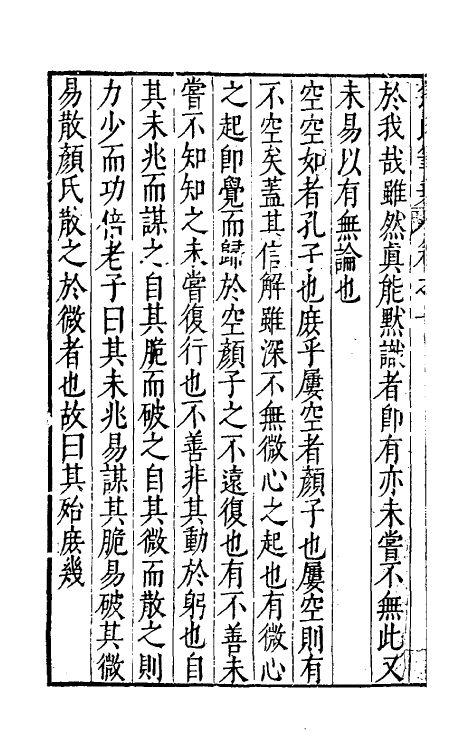 於我哉雖然眞能默識者卽有亦未嘗不無此又
未易以有無論也
空空如者孔子也庶乎屢空者顏子也屢空則有
不空矣蓋其信解雖深不無微心之起也有微心
之起卽覺而歸於空顏子之不遠復也有不善未
嘗不知知之未嘗復行也不善非其動於躬也自
其未兆而謀之自其脆而破之自其微而散之則
力少而功倍老子曰其未兆易謀其脆易破其微
易散顏氏散之於微者也故曰其殆庶幾